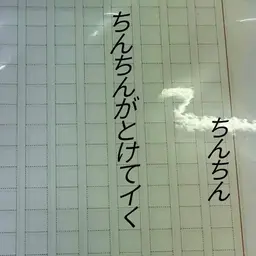 ちんちん
ちんちんがとけてイく